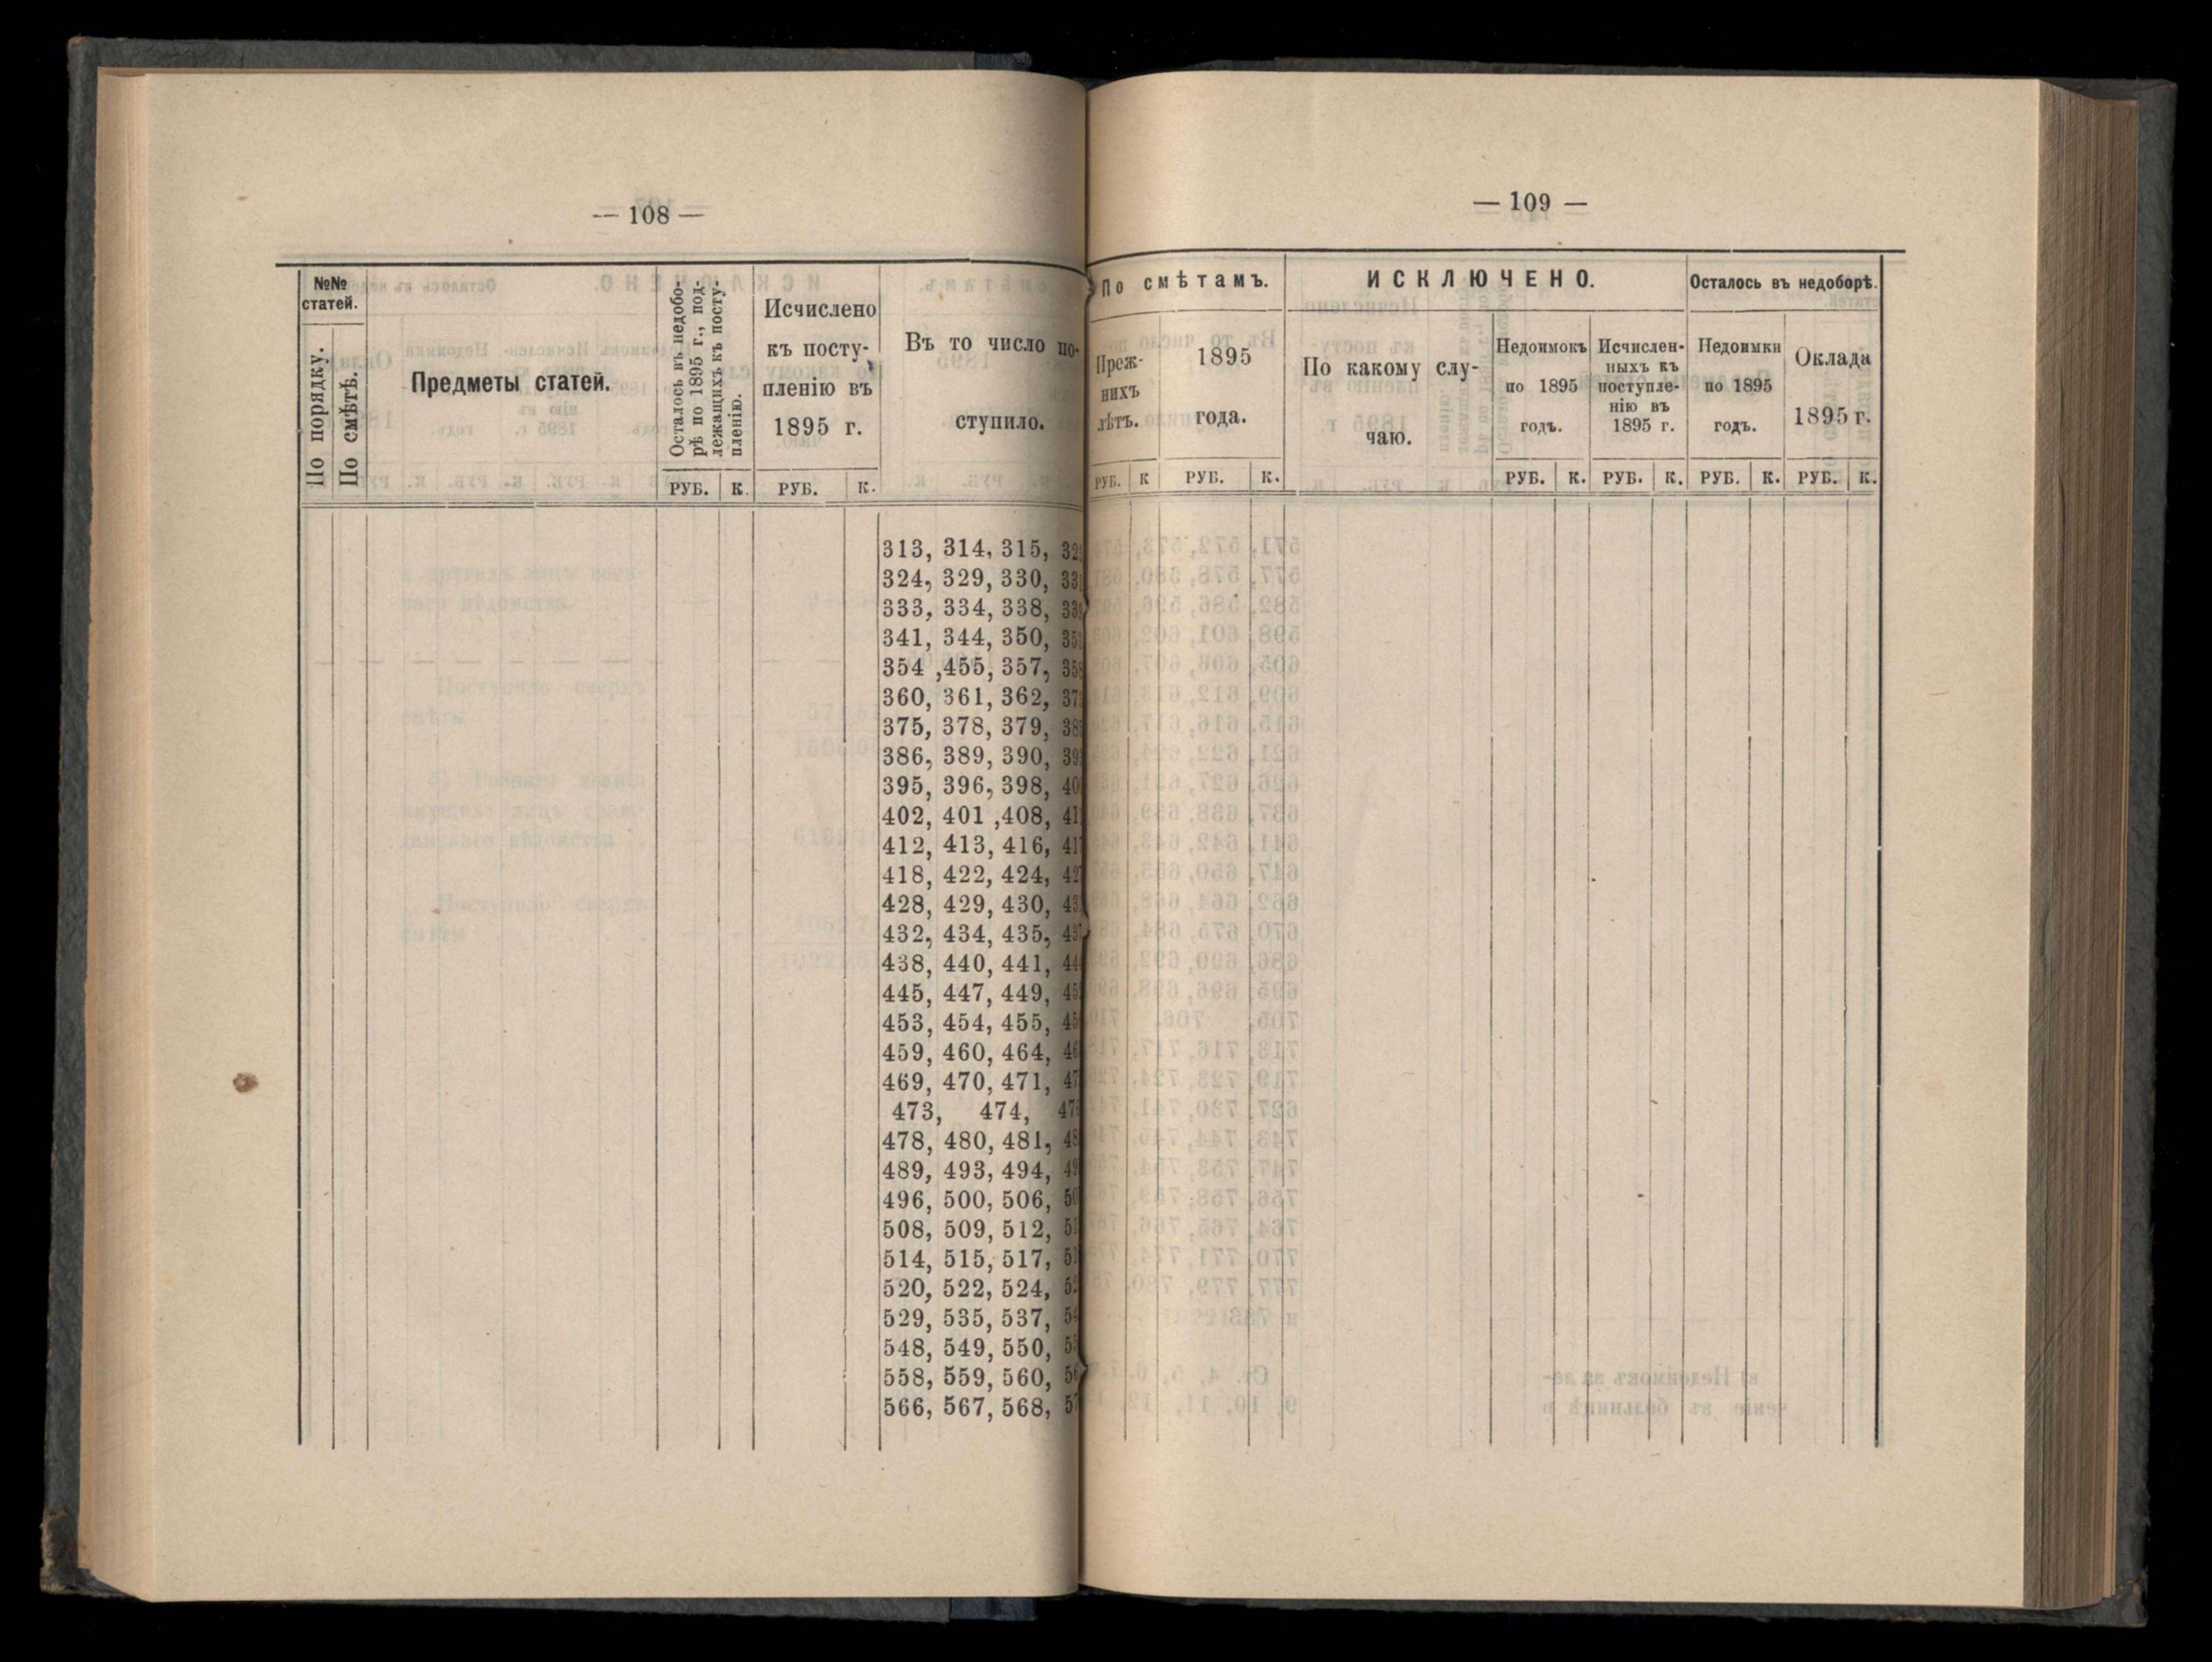 — 108 —
№№
статей.
По порядку.
По смѣтѣ.
Предметы статей.
Осталось въ недобо-
рѣ по 1895 г., под-
лежащихъ къ посту-
пленію.
Исчислено
къ посту-
пленію въ
1895 г.
Въ то число по-
ступило.
РУБ. К. РУБ. К.
313, 314, 315,
324, 329, 330,
333, 334, 338,
341, 344, 350,
354 ,455, 357,
360, 361, 362,
375, 378, 379,
386, 389, 390,
395, 396, 398,
402, 401 ,408,
412, 413, 416,
418, 422, 424,
428, 429, 430,
432, 434, 435,
438, 440, 441,
445, 447, 449,
453, 454, 455,
459, 460, 464,
469, 470, 471,
473, 474,
478, 480, 481,
489, 493, 494,
496, 500, 506,
508, 509, 512,
514, 515, 517,
520, 522, 524,
529, 535, 537,
548, 549, 550,
558, 559, 560,
566, 567, 568,
— 109 —
По смѣтамъ.
ИСКЛЮЧЕНО.
Осталось въ недоборѣ.
Преж-
нихъ
лѣтъ.
1895
года.
По какому слу-
чаю.
Недоимокъ
по 1895
годъ.
Исчислен-
ныхъ къ
поступле-
нію въ
1895 г.
Недоимки
по 1895
годъ.
Оклада
1895 г.
РУБ. К РУБ. К. РУБ. К. РУБ. К. РУБ. К. РУБ. К.